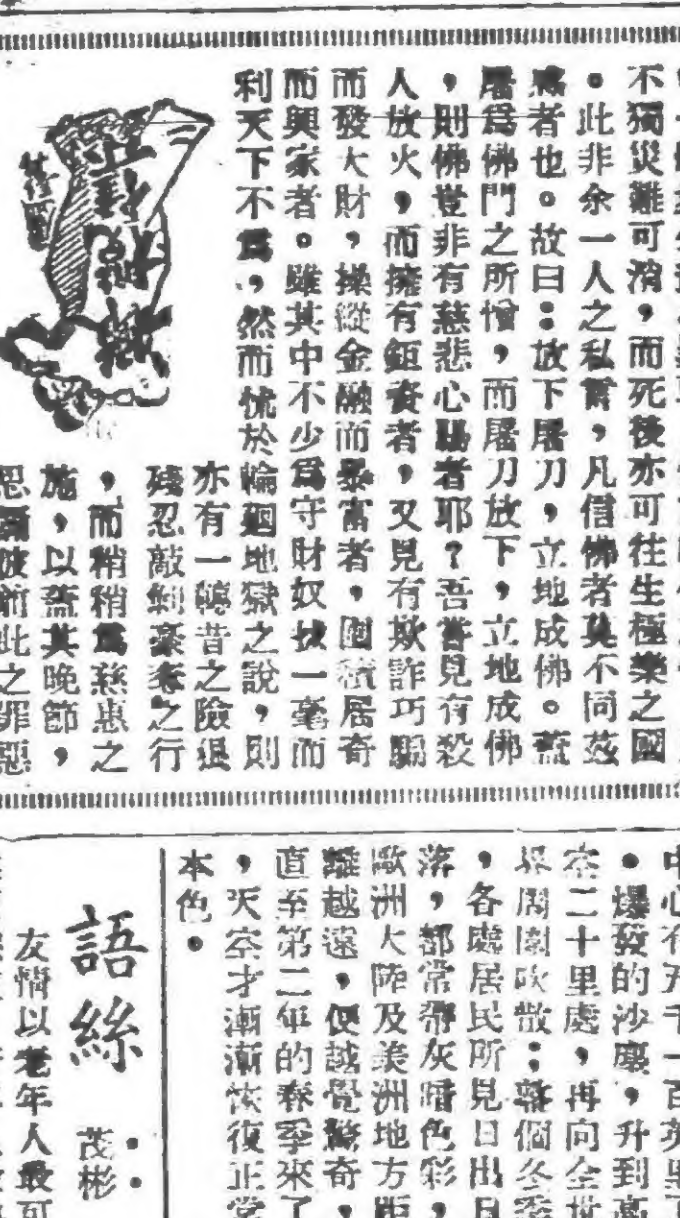 不獨災難可消，而死後亦可往生極樂之國
。此非余一人之私言，凡信佛者莫不同茲
感者也。故曰：放下屠刀，立地成佛。蓋
屠爲佛門之所憎，而屠刀放下，立地成佛
，則佛豈非有慈悲心腸者耶？吾嘗見有殺
人放火，而擁有鉅資者，又見有欺詐巧騙
而發大財，操縱金融而暴富者，囤積居奇
而興家者。雖其中不少爲守財奴拔一毫而
利天下不爲，然而怵於輪廻地獄之說，則
亦有一轉昔之險狠
殘忍敲剝豪奪之行
，而稍稍爲慈惠之
施，以蓋其晚節，
此之罪惡
中心有五千一百英里
。爆發的沙塵，升到高
空二十里處，再向全世
界周圍吹散；整個冬季
，各處居民所見日出日
落，都常帶灰暗色彩，
歐洲大陸及美洲地方距
離越遠，便越覺驚奇，
直至第二年的春季來了
，天空才漸漸恢復正常
本色。
語絲
茂彬
友情以老年人最可